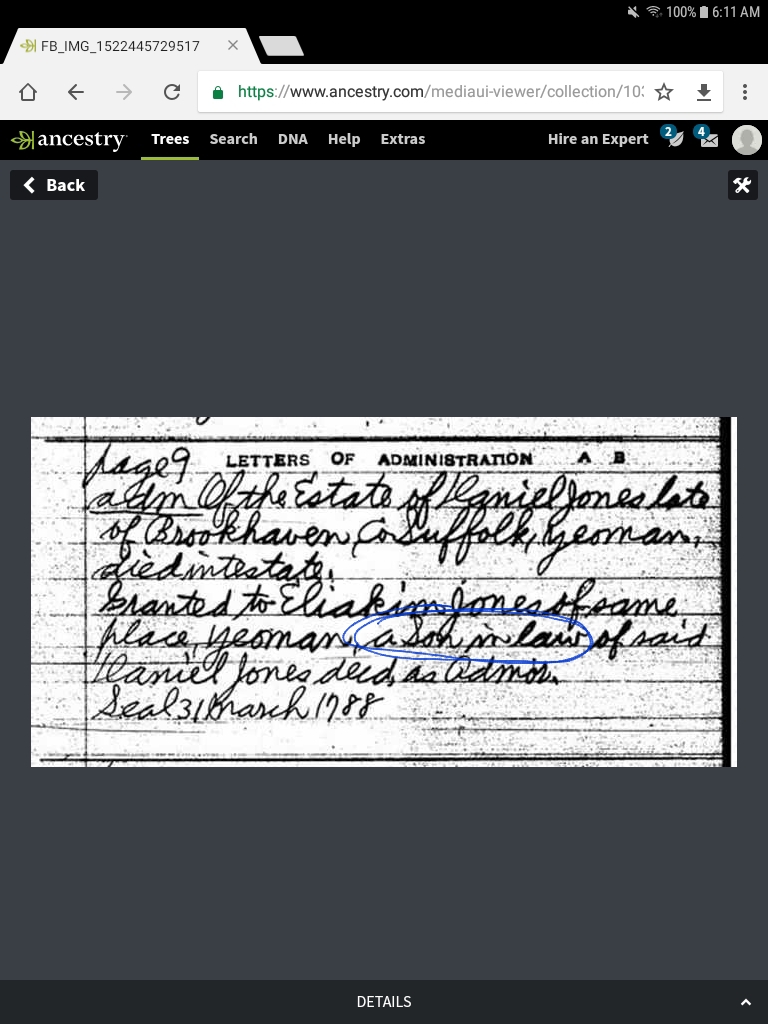 100% 6:11 AM
FB_IMG_1522445729517
https://www.ancestry.com/mediaui-viewer/collection/103
ancestry Trees Search DNA Help Extras Hire an Expert 2 4
Back
page 9 LETTERS OF ADMINISTRATION A B
adm Of the Estate of Daniel Jones late
of Brookhaven, Co Suffolk, yeoman,
died intestate.
Granted to Eliakim Jones of same
place, yeoman, a Son in law of said
Daniel Jones decd, as Admor.
Seal 31 March 1788
DETAILS